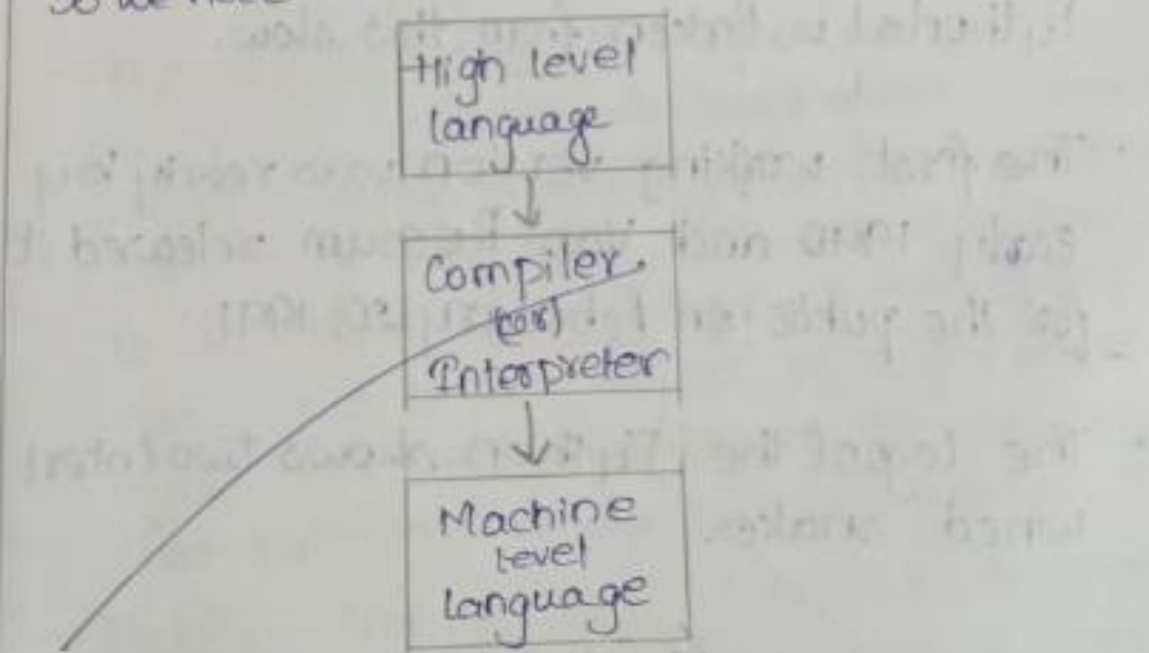 So we need
High level
language
Compiler
(or)
Interpreter
Machine
level
language